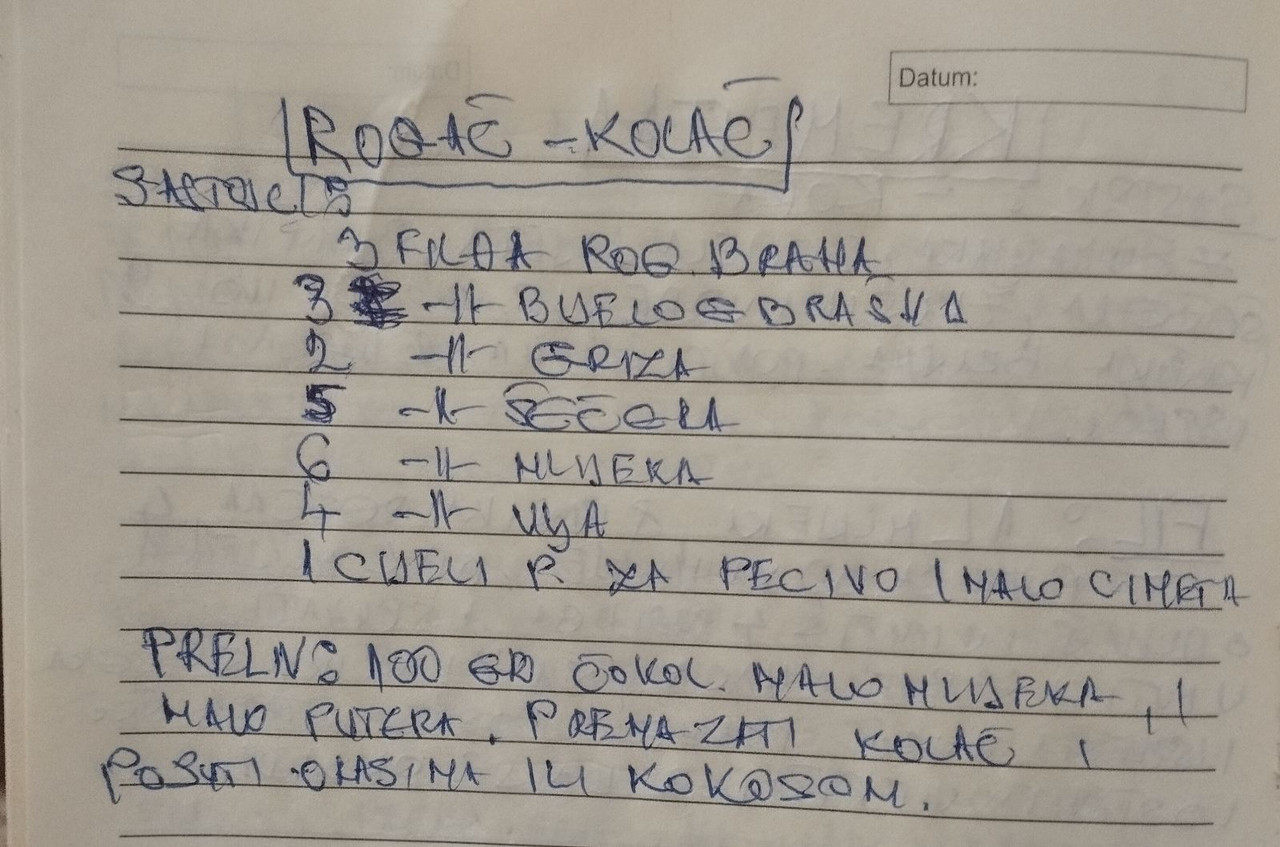 Datum:
ROGAČ - KOLAČ
SASTOJCI:
3 FILDA ROG. BRAŠNA
3 -||- BIJELOG BRAŠNA
2 -||- GRIZA
5 -||- ŠEĆERA
6 -||- MLIJEKA
4 -||- ULJA
1 CIJELI P. ZA PECIVO I MALO CIMETA
PRELIV: 100 GR ČOKOL. MALO MLIJEKA, I
MALO PUTERA. PREMAZATI KOLAČ I
POSUTI ORASIMA ILI KOKOSOM.